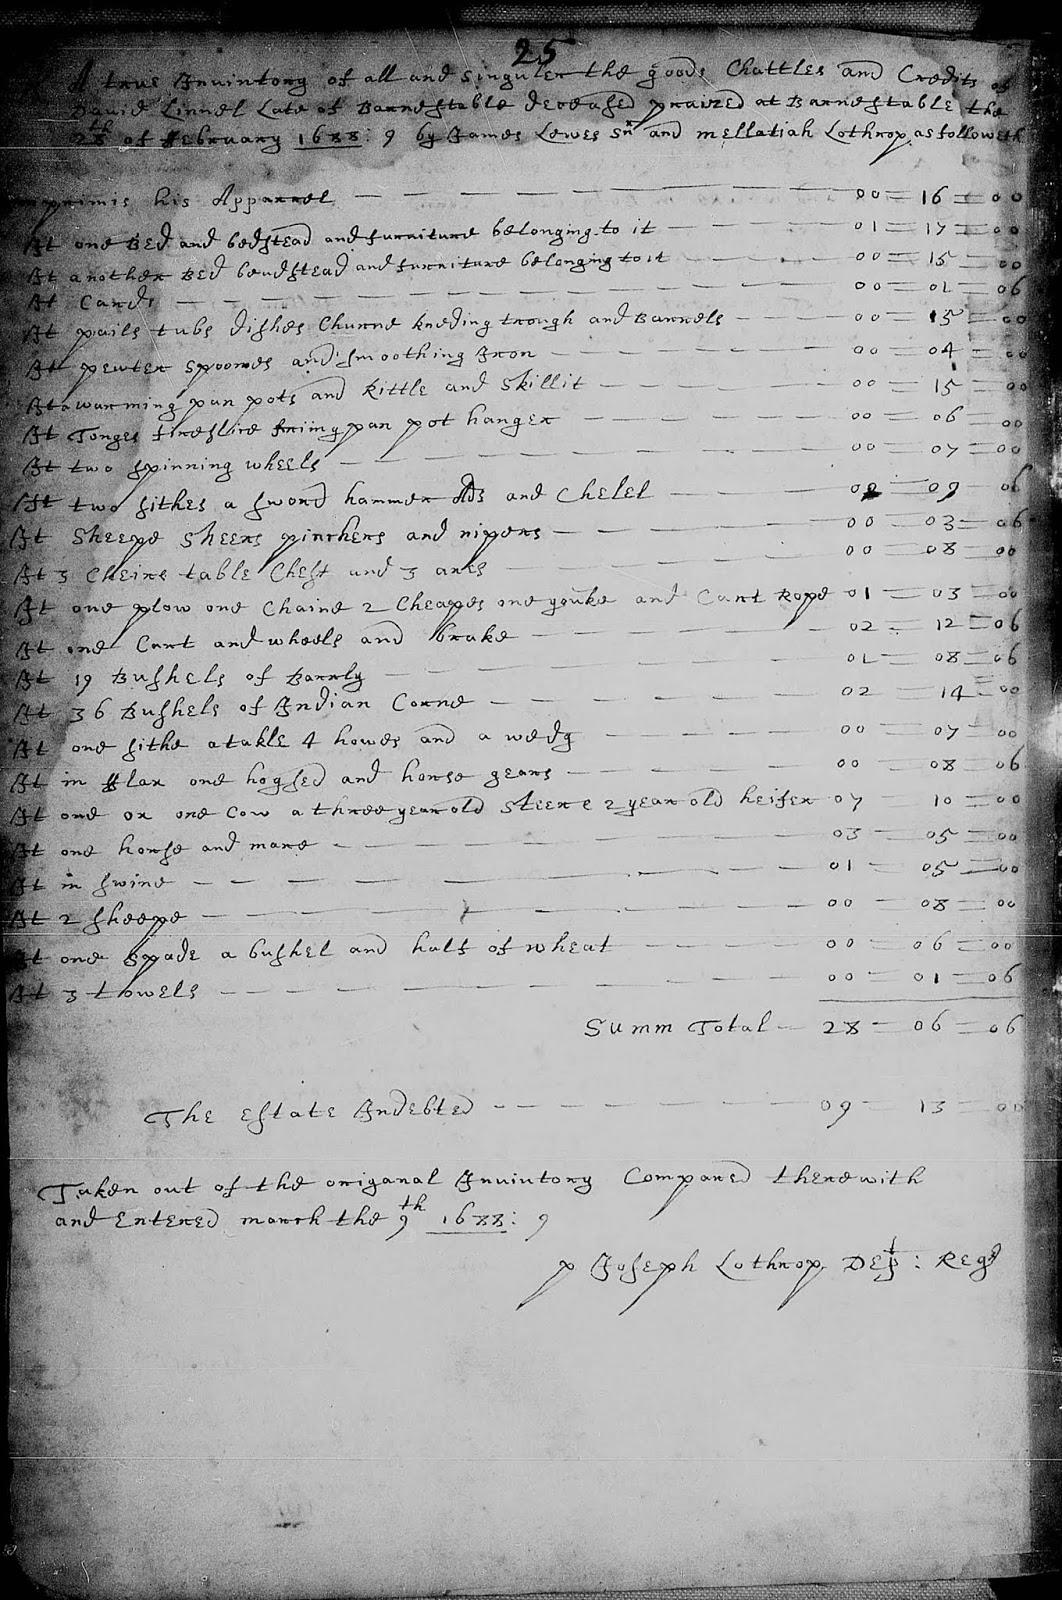 25
A true Invintory of all and singuler the goods Chattles and Credits of
David Linnel Late of Barnestable deceased praized at Barnestable the
28th of ffebruary 1688: 9 by James Lewes Snr and mellatiah Lothrop as followeth
his Apparrel — 00 = 16 = 00
It one Bed and bedstead and furniture belonging to it — 01 = 17 = 00
It another Bed beudstead and furniture belonging to it — 00 = 15 = 00
It Cards — 00 = 01 = 06
It pails tubs dishes Churne kneding trough and Barrels — 00 = 15 = 00
It pewter spoones and smoothing Iron — 00 = 04 = 00
It a warming pan pots and Kittle and Skillit — 00 = 15 = 00
It Tonges fireslice friing pan pot hanger — 00 = 06 = 00
It two spinning wheels — 00 = 07 = 00
It two sithes a sword hammer Ads and Chesel — 09 = 06
It Sheepe Sheers pinchers and nipers — 00 = 03 = 06
It 3 Cheirs table Chest and 3 axes — 00 = 08 = 00
It one plow one Chaine 2 Cheapes one youke and Cart Rope 01 = 03 = 00
It one Cart and wheels and brake — 02 = 12 = 06
It 19 Bushels of Barrly — 01 = 08 = 06
It 36 Bushels of Indian Corne — 02 = 14 = 00
It one sithe a takle 4 howes and a wedg — 00 = 07 = 00
It in fflax one hogsed and horse gears — 00 = 08 = 06
It one ox one Cow a three year old steere 2 year old heifer 07 10 = 00
It one horse and mare — 03 = 05 = 00
It in swine — 01 = 05 = 00
It 2 sheepe — 00 = 08 = 00
It one spade a bushel and half of wheat — 00 = 06 = 00
It 3 towels — 00 = 01 = 06
Summ Total — 28 = 06 = 06
The Estate Indebted — 09 — 13 = 00
Taken out of the origanal Invintory Compared therewith
and Entered march the 9th 1688: 9
p Joseph Lothrop Dept: Regr